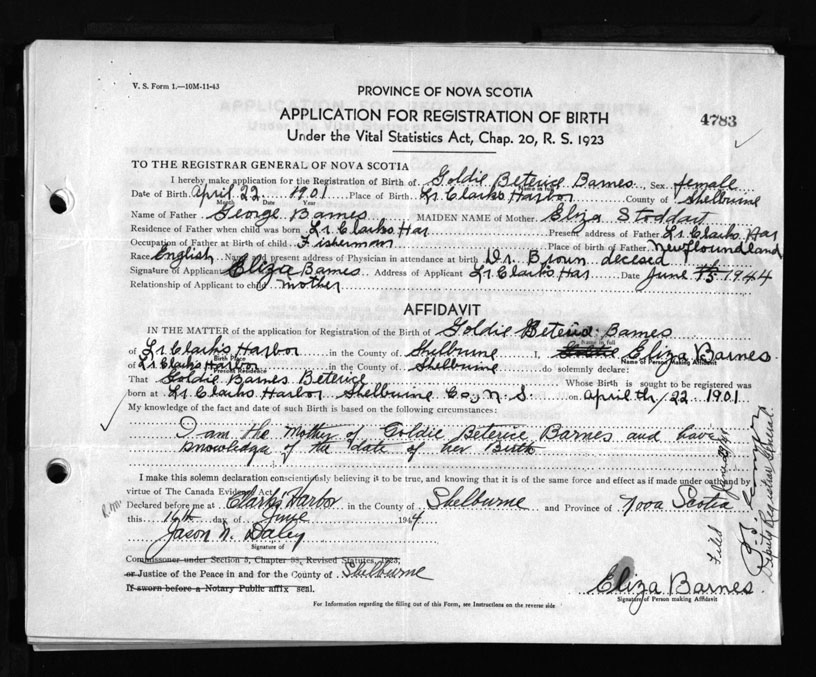 V. S. Form 1.—10M-11-43
PROVINCE OF NOVA SCOTIA
APPLICATION FOR REGISTRATION OF BIRTH
4783
Under the Vital Statistics Act, Chap. 20, R. S. 1923
TO THE REGISTRAR GENERAL OF NOVA SCOTIA
I hereby make application for the Registration of Birth of Goldie Beterice Barnes Sex female
Name in full
Date of Birth April 22 1901 Place of Birth Lr Clarks Harbor County of Shelburne
Month Date Year
Name of Father George Barnes MAIDEN NAME of Mother Eliza Stoddart
Residence of Father when child was born Lr Clarks Har Present address of Father Lr Clarks Har
Occupation of Father at Birth of child Fisherman Place of birth of Father Newfoundland
Race English Name and present address of Physician in attendance at birth Dr. Broun decesed
Signature of Applicant Eliza Barnes Address of Applicant Lr Clarks Har Date June 15 1944
Relationship of Applicant to child mother
AFFIDAVIT
IN THE MATTER of the application for Registration of the Birth of Goldie Beterice Barnes
Name in full
of Lr Clarks Harbor in the County of Shelburne I, Goldie Eliza Barnes
Birth Place Name of Person making Affidavit
of Lr Clarks Harbor in the County of Shelburne do solemnly declare:
Present Residence
That Goldie Barnes Beterice Whose Birth is sought to be registered was
born at Lr Clarks Harbor Shelburne Co, N. S. on april th/22 1901
My knowledge of the fact and date of such Birth is based on the following circumstances:
I am the Mother of Goldie Beterice Barnes and have
knowledge of the date of her Birth
I make this solemn declaration conscientiously believing it to be true, and knowing that it is of the same force and effect as if made under oath and by
virtue of The Canada Evidence Act
Declared before me at Clarks Harbor in the County of Shelburne and Province of Nova Scotia
this 16th day of June 1944
Jason N. Daley
Signature of
Commissoner under Section 5, Chapter 38, Revised Statutes, 1923,
or Justice of the Peace in and for the County of Shelburne
If sworn before a Notary Public affix seal.
Eliza Barnes
Signature of Person making Affidavit
For Information regarding the filling out of this Form, see Instructions on the reverse side
Filed
Deputy Registrar General